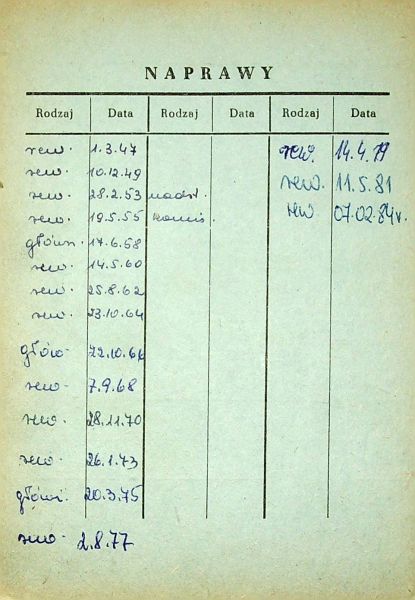 NAPRAWY
Rodzaj Data Rodzaj Data Rodzaj Data
rew. 1.3.47 rew. 14.4.79
rew. 10.12.49 rew. 11.5.81
rew. 28.2.53 nadst. rew 07.02.84r.
rew. 19.5.55 komis.
główn. 17.6.58
rew. 14.5.60
rew. 25.8.62
rew. 23.10.64
główn. 22.10.66
rew. 7.9.68
rew. 28.11.70
rew. 26.1.73
główn. 20.3.75
rew. 2.8.77